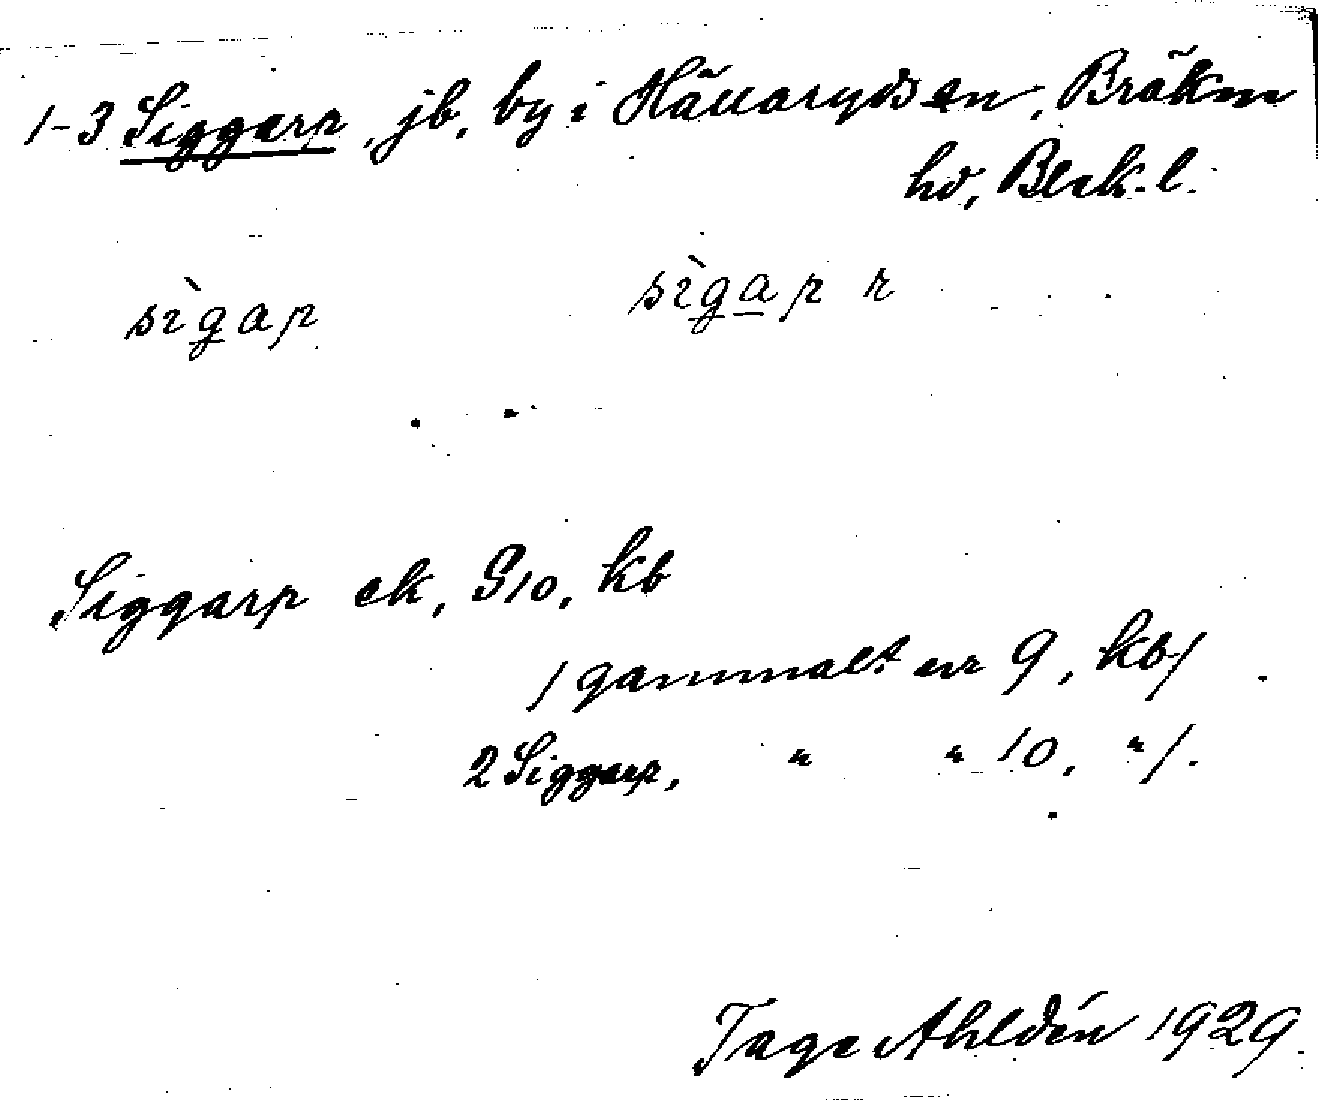 1-3 Siggarp, jb, by i Hällaryds sn, Bräkne
hd, Blek. l.
sìgap sìgap r
Siggarp ek, G10, kb
/ gammalt nr 9, kb/
2 Siggarp, " " 10, "/.
Tage Ahldén 1929